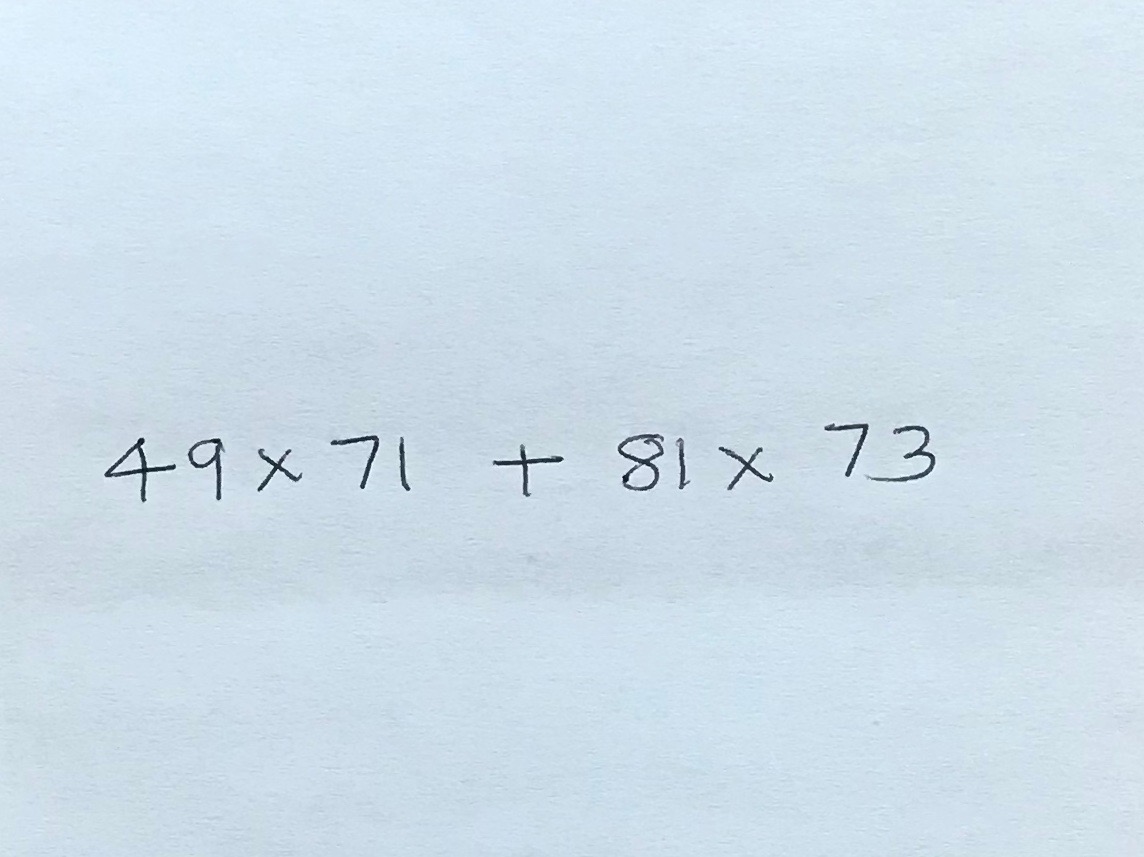 49 × 71 + 81 × 73